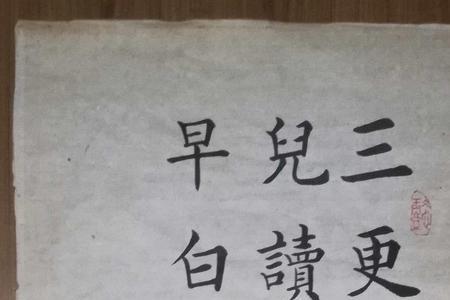 三更
兒讀
早白